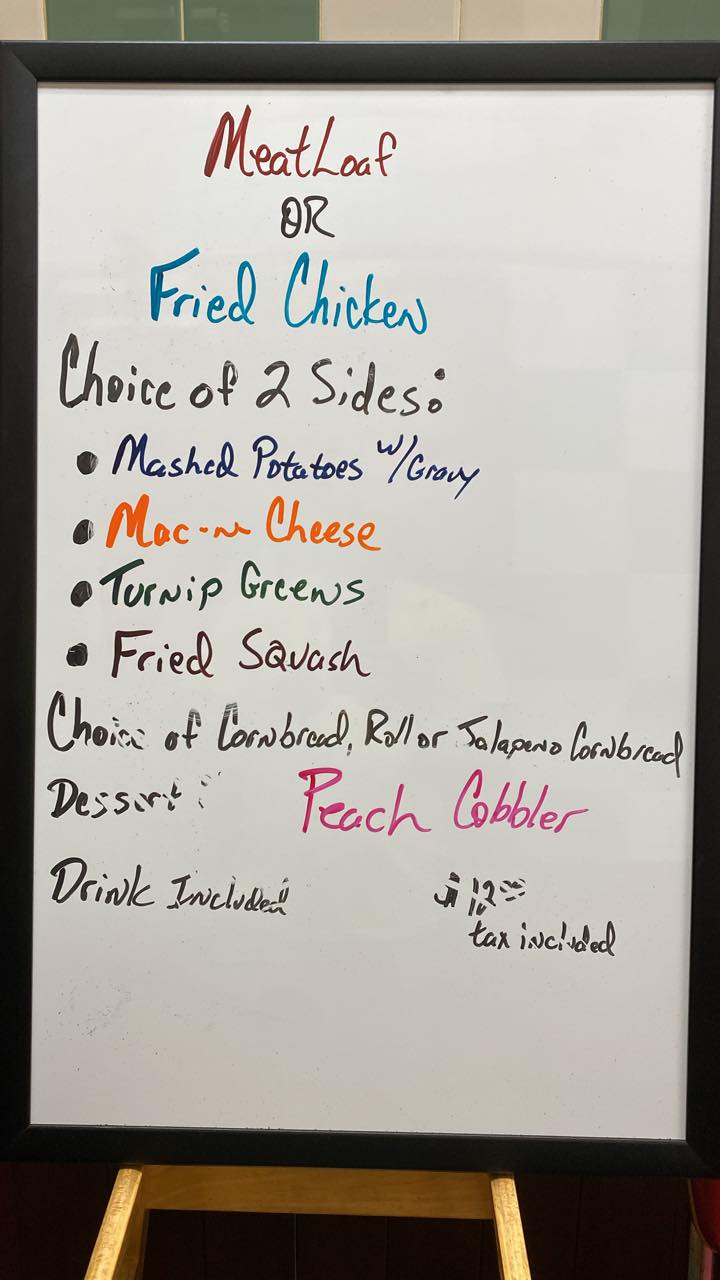 MeatLoaf
OR
Fried Chicken
Choice of 2 Sides:
• Mashed Potatoes w/Gravy
• Mac-n Cheese
• Turnip Greens
• Fried Squash
Choice of Cornbread, Roll or Jalapeno Cornbread
Dessert: Peach Cobbler
Drink Included
tax included